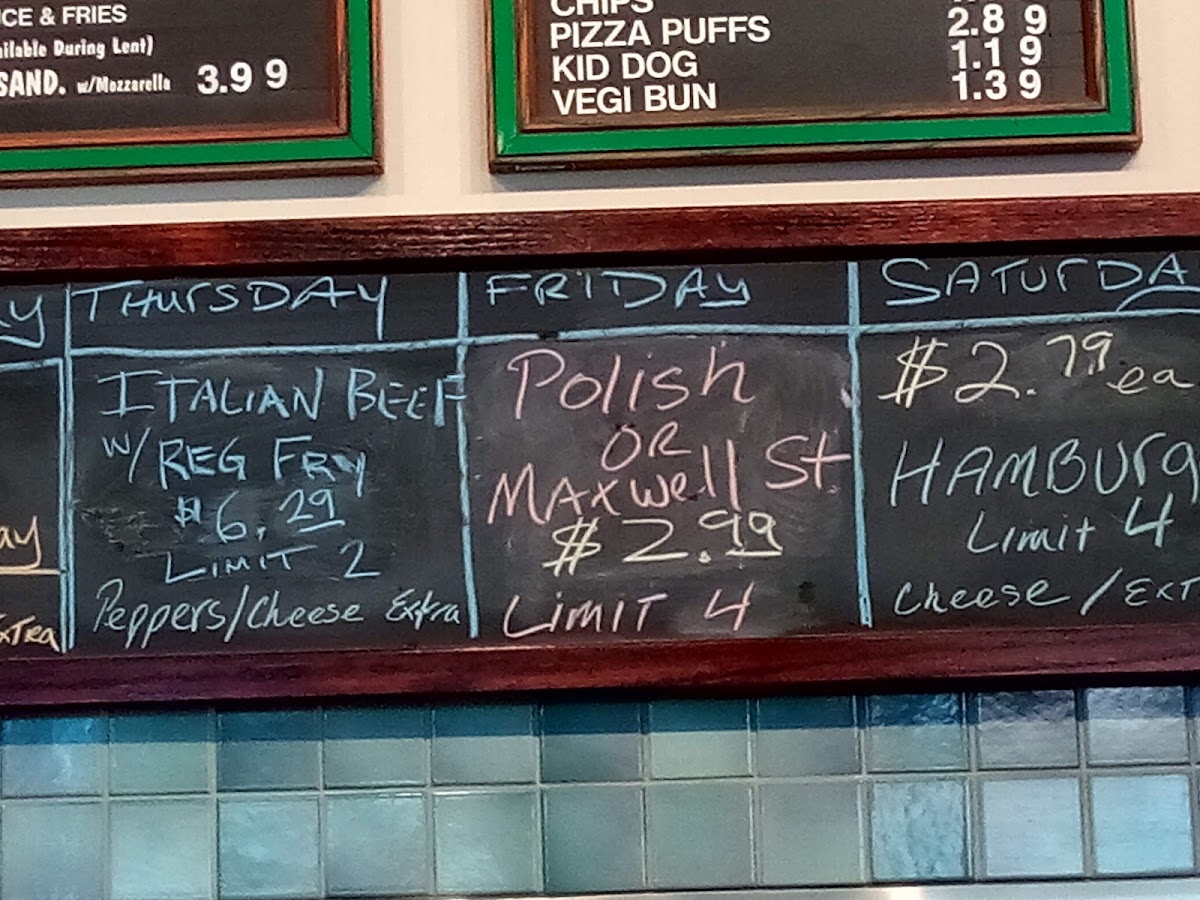 ICE & FRIES
ailable During Lent)
SAND. w/Mozzarella 3.99
CHIPS
PIZZA PUFFS 2.89
KID DOG 1.19
VEGI BUN 1.39
ay
ExTea
THURSDAY
ITALIAN BEEF
W/REG FRY
$6.29
LIMIT 2
Peppers/Cheese Extra
FRIDAY
Polish
OR
MAXWell St.
$2.99
LIMIT 4
SATURDA
$2.79 ea
HAMBURG
Limit 4
Cheese/EXT